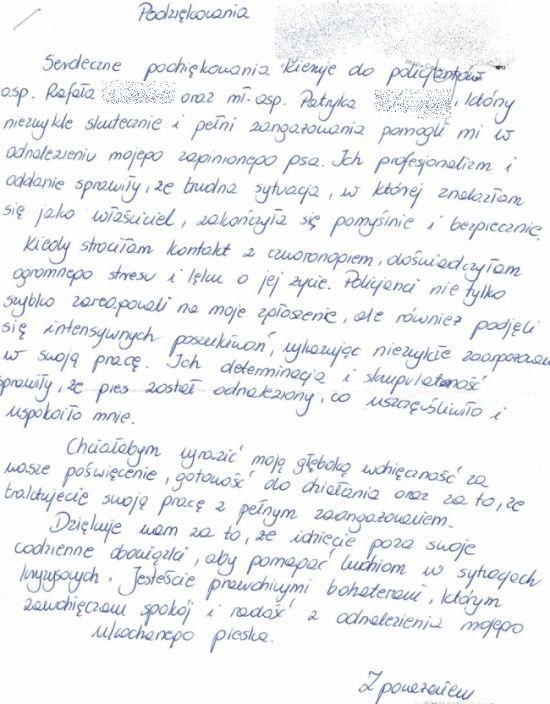 Podziękowania
Serdeczne podziękowania kieruję do policjantów
asp. Rafała oraz mł. asp. Patryka , który
niezwykle skutecznie i pełni zaangażowania pomogli mi w
odnalezieniu mojego zaginionego psa. Ich profesjonalizm i
oddanie sprawiły, że trudna sytuacja, w której znalazłam
się jako właściciel, zakończyła się pomyślnie i bezpiecznie.
Kiedy straciłam kontakt z czworonogiem, doświadczyłam
ogromnego stresu i lęku o jej życie. Policjanci nie tylko
szybko zareagowali na moje zgłoszenie, ale również podjęli
się intensywnych poszukiwań, wykazując niezwykłe
w swoją pracę. Ich determinacja i skrupulatność
sprawiły, że pies został odnaleziony, co uszczęśliwiło i
uspokoiło mnie.
Chciałabym wyrazić moją głęboką wdzięczność za
wasze poświęcenie, gotowość do działania oraz za to, że
traktujecie swoją pracę z pełnym zaangażowaniem.
Dziękuję wam za to, że idziecie poza swoje
codzienne obowiązki, aby pomagać ludziom w sytuacjach
kryzysowych. Jesteście prawdziwymi bohaterami, którym
zawdzięczam spokój i radość z odnalezienia mojego
ukochanego pieska.
Z poważaniem